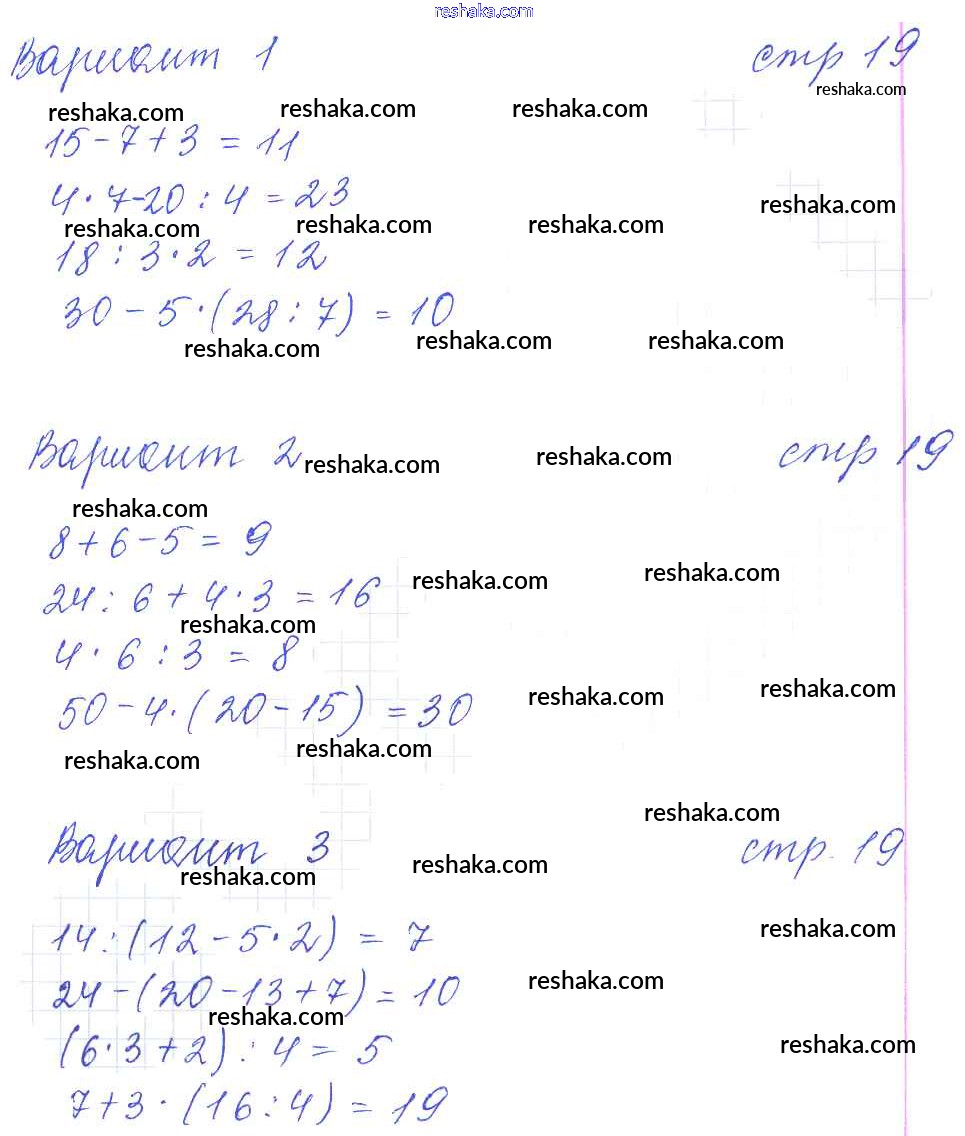 reshaka.com
Вариант 1 стр 19
reshaka.com
reshaka.com reshaka.com reshaka.com
15 - 7 + 3 = 11
4 · 7 - 20 : 4 = 23
reshaka.com
reshaka.com reshaka.com reshaka.com
18 : 3 · 2 = 12
30 - 5 · (28 : 7) = 10
reshaka.com reshaka.com reshaka.com
Вариант 2 стр 19
reshaka.com reshaka.com
reshaka.com
8 + 6 - 5 = 9
reshaka.com reshaka.com
24 : 6 + 4 · 3 = 16
reshaka.com
4 · 6 : 3 = 8
reshaka.com reshaka.com
50 - 4 · (20 - 15) = 30
reshaka.com reshaka.com
reshaka.com
Вариант 3 стр. 19
reshaka.com reshaka.com
14 : (12 - 5 · 2) = 7
reshaka.com
reshaka.com
24 - (20 - 13 + 7) = 10
reshaka.com
(6 · 3 + 2) : 4 = 5
reshaka.com
7 + 3 · (16 : 4) = 19